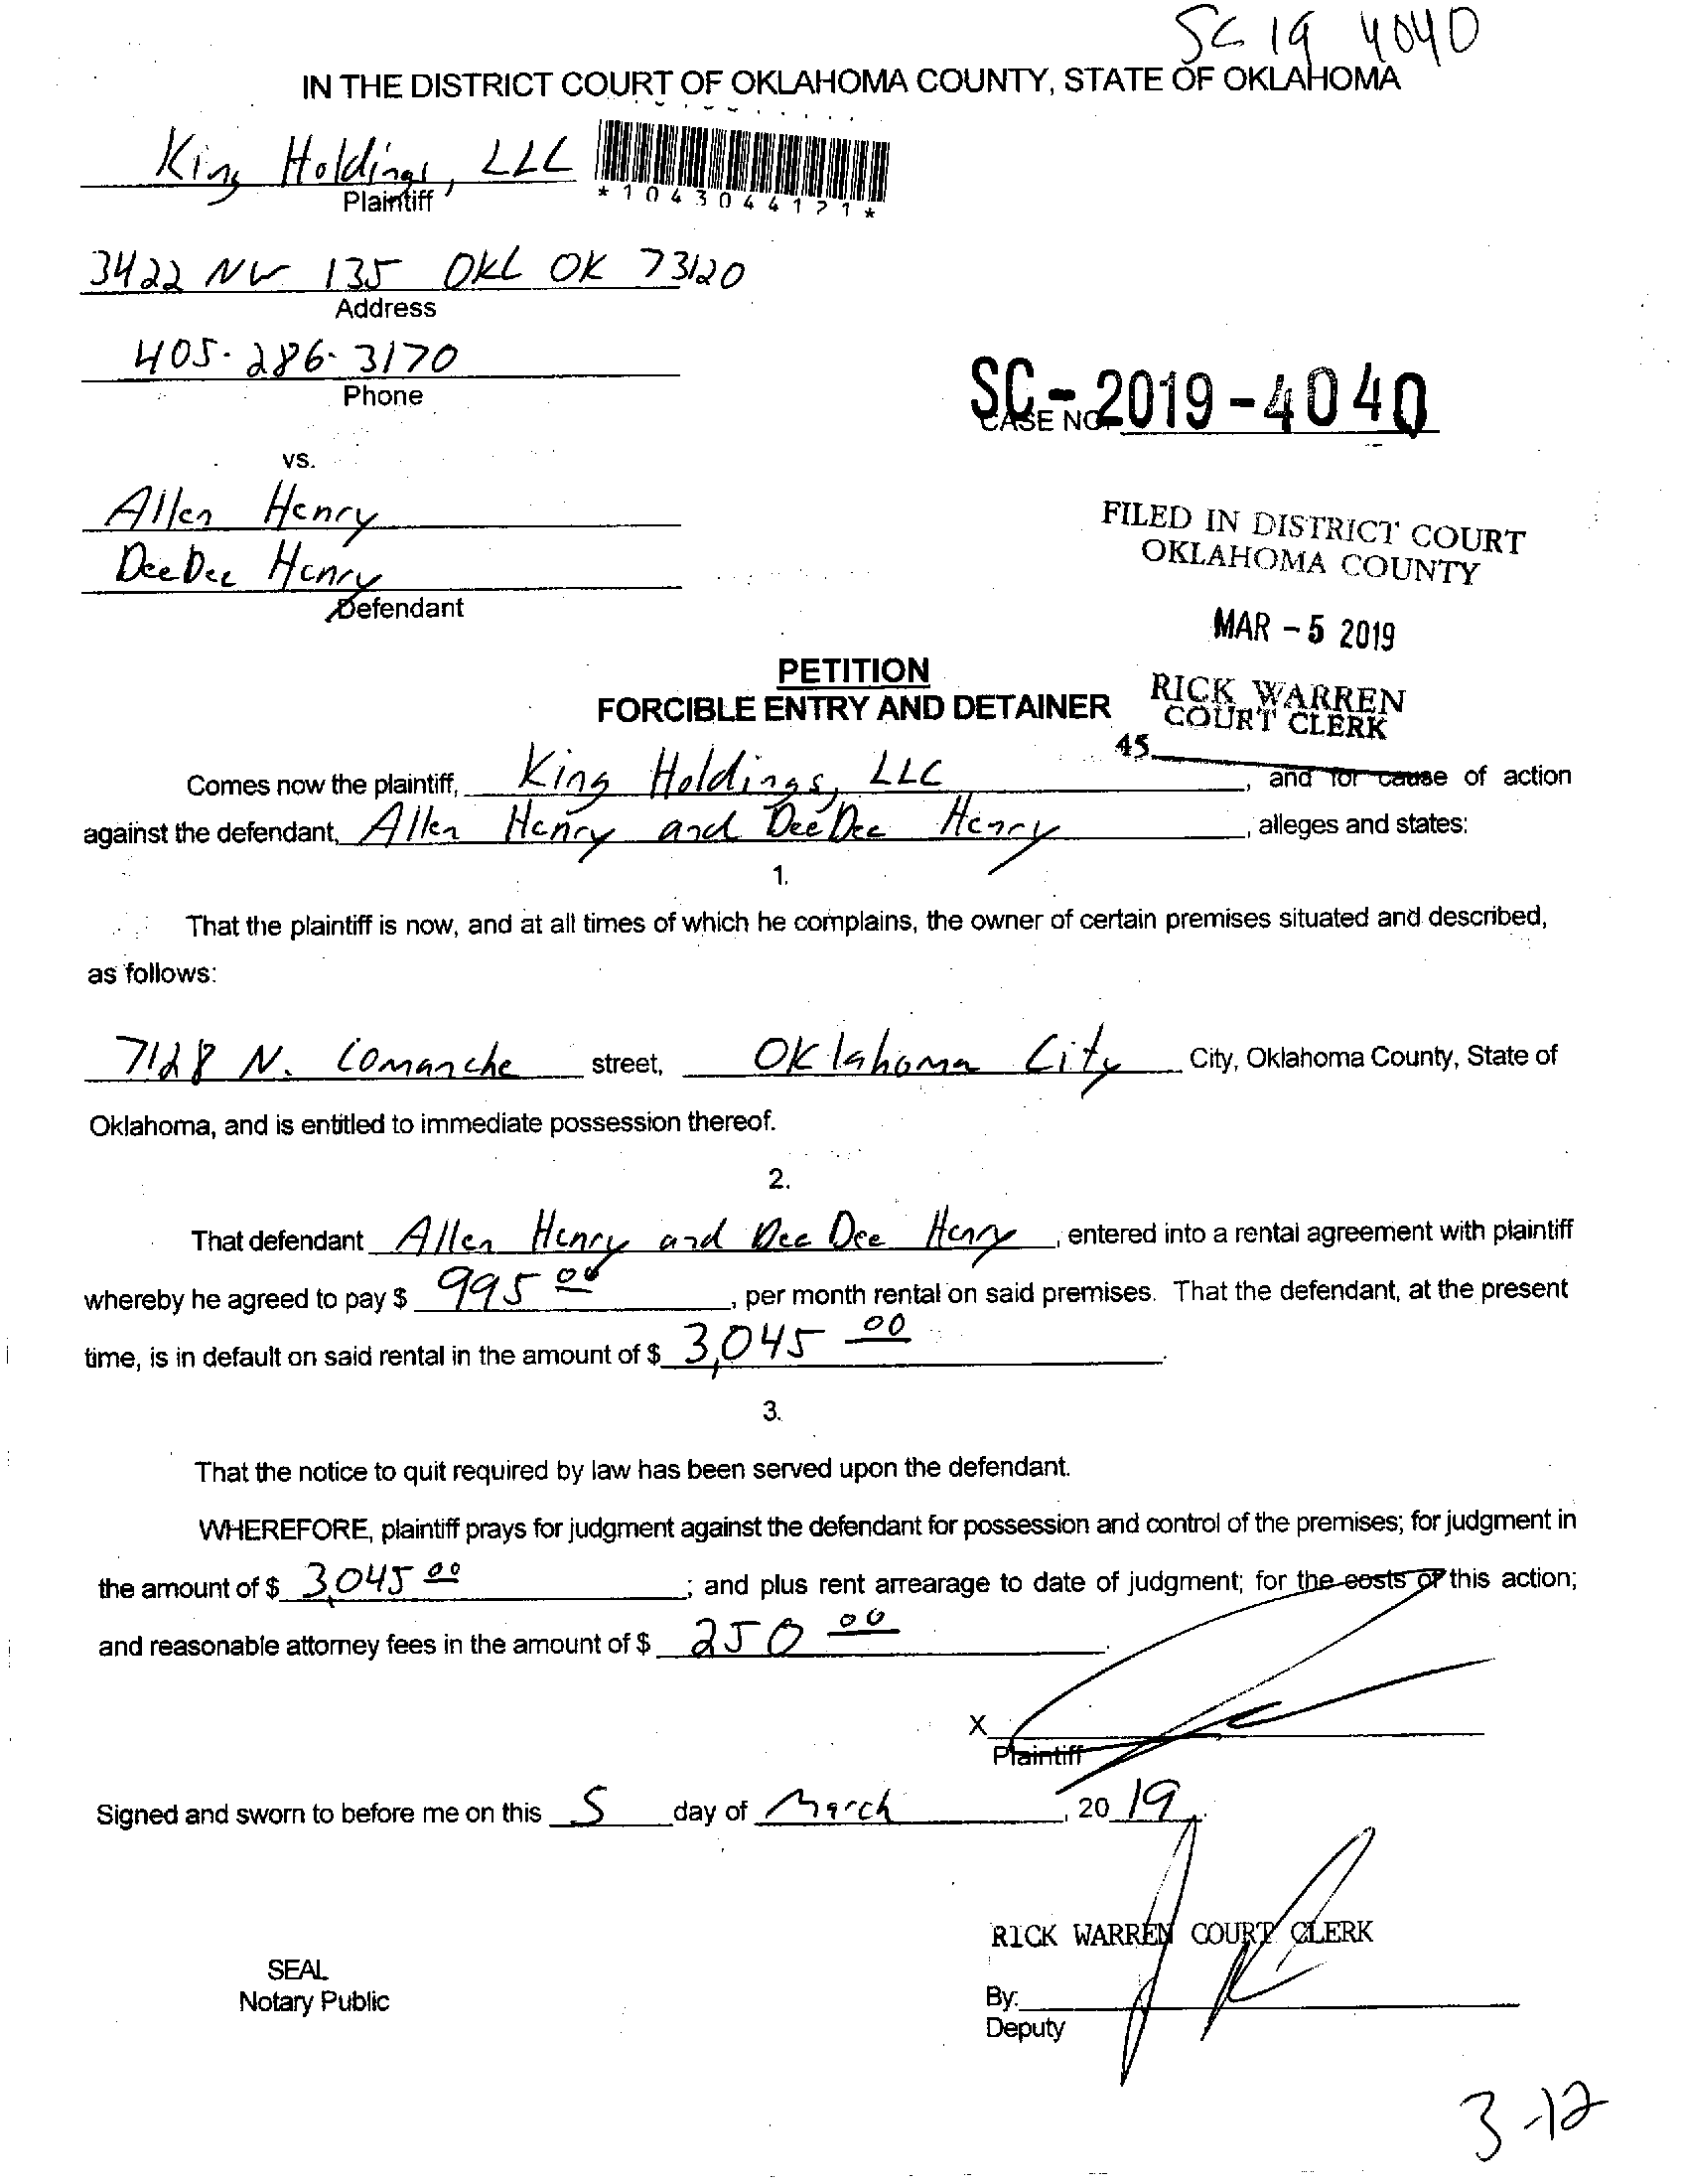 SC 19 4040
IN THE DISTRICT COURT OF OKLAHOMA COUNTY, STATE OF OKLAHOMA
King Holdings, LLC
Plaintiff
*1043044171*
3422 NW 135 OKC OK 73120
Address
405-286-3170
Phone
SC-2019-4040
CASE NO.
vs.
Allen Henry
DeeDee Henry
Defendant
FILED IN DISTRICT COURT
OKLAHOMA COUNTY
MAR -5 2019
RICK WARREN
COURT CLERK
45
PETITION
FORCIBLE ENTRY AND DETAINER
Comes now the plaintiff, King Holdings, LLC, and for cause of action
against the defendant, Allen Henry and DeeDee Henry, alleges and states:
1.
That the plaintiff is now, and at all times of which he complains, the owner of certain premises situated and described,
as follows:
7128 N. Comanche street, Oklahoma City City, Oklahoma County, State of
Oklahoma, and is entitled to immediate possession thereof.
2.
That defendant Allen Henry and Dee Dee Henry, entered into a rental agreement with plaintiff
whereby he agreed to pay $ 995 00, per month rental on said premises. That the defendant, at the present
time, is in default on said rental in the amount of $ 3,045 00.
3.
That the notice to quit required by law has been served upon the defendant.
WHEREFORE, plaintiff prays for judgment against the defendant for possession and control of the premises; for judgment in
the amount of $ 3,045 00; and plus rent arrearage to date of judgment; for the costs of this action;
and reasonable attorney fees in the amount of $ 250 00.
X
Plaintiff
Signed and sworn to before me on this 5 day of March, 20 19.
RICK WARREN COURT CLERK
SEAL
Notary Public
By:
Deputy
3-12